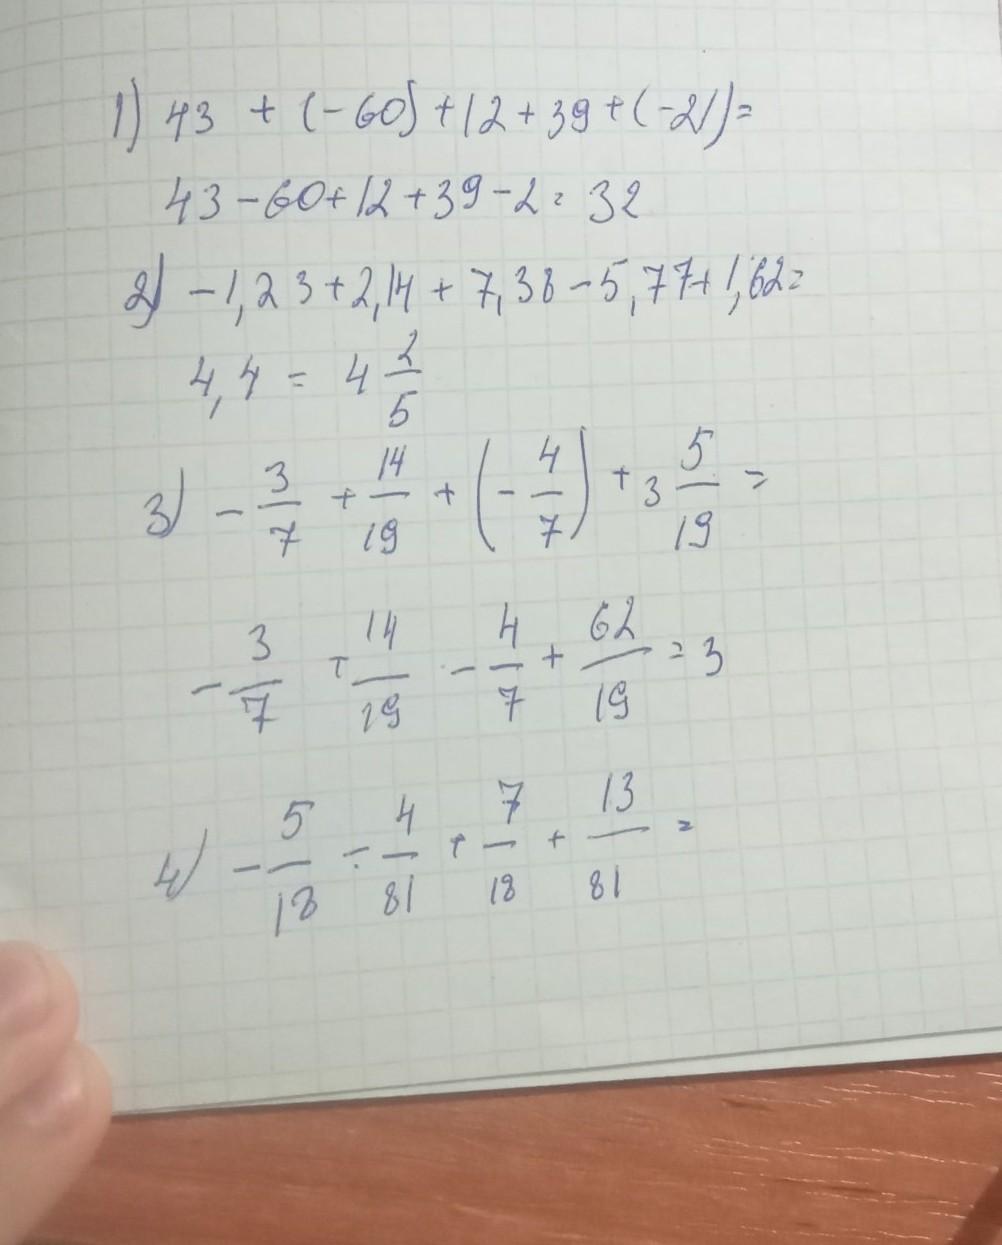 1) 43 + (-60) + 12 + 39 + (-2) =
43 - 60 + 12 + 39 - 2 = 32
2) -1,23 + 2,14 + 7,38 - 5,77 + 1,62 =
4,4 = 4 2/5
3) - 3/7 + 14/19 + (- 4/7) + 3 5/19 =
- 3/7 + 14/19 - 4/7 + 62/19 = 3
4) - 5/18 - 4/81 + 7/18 + 13/81 =